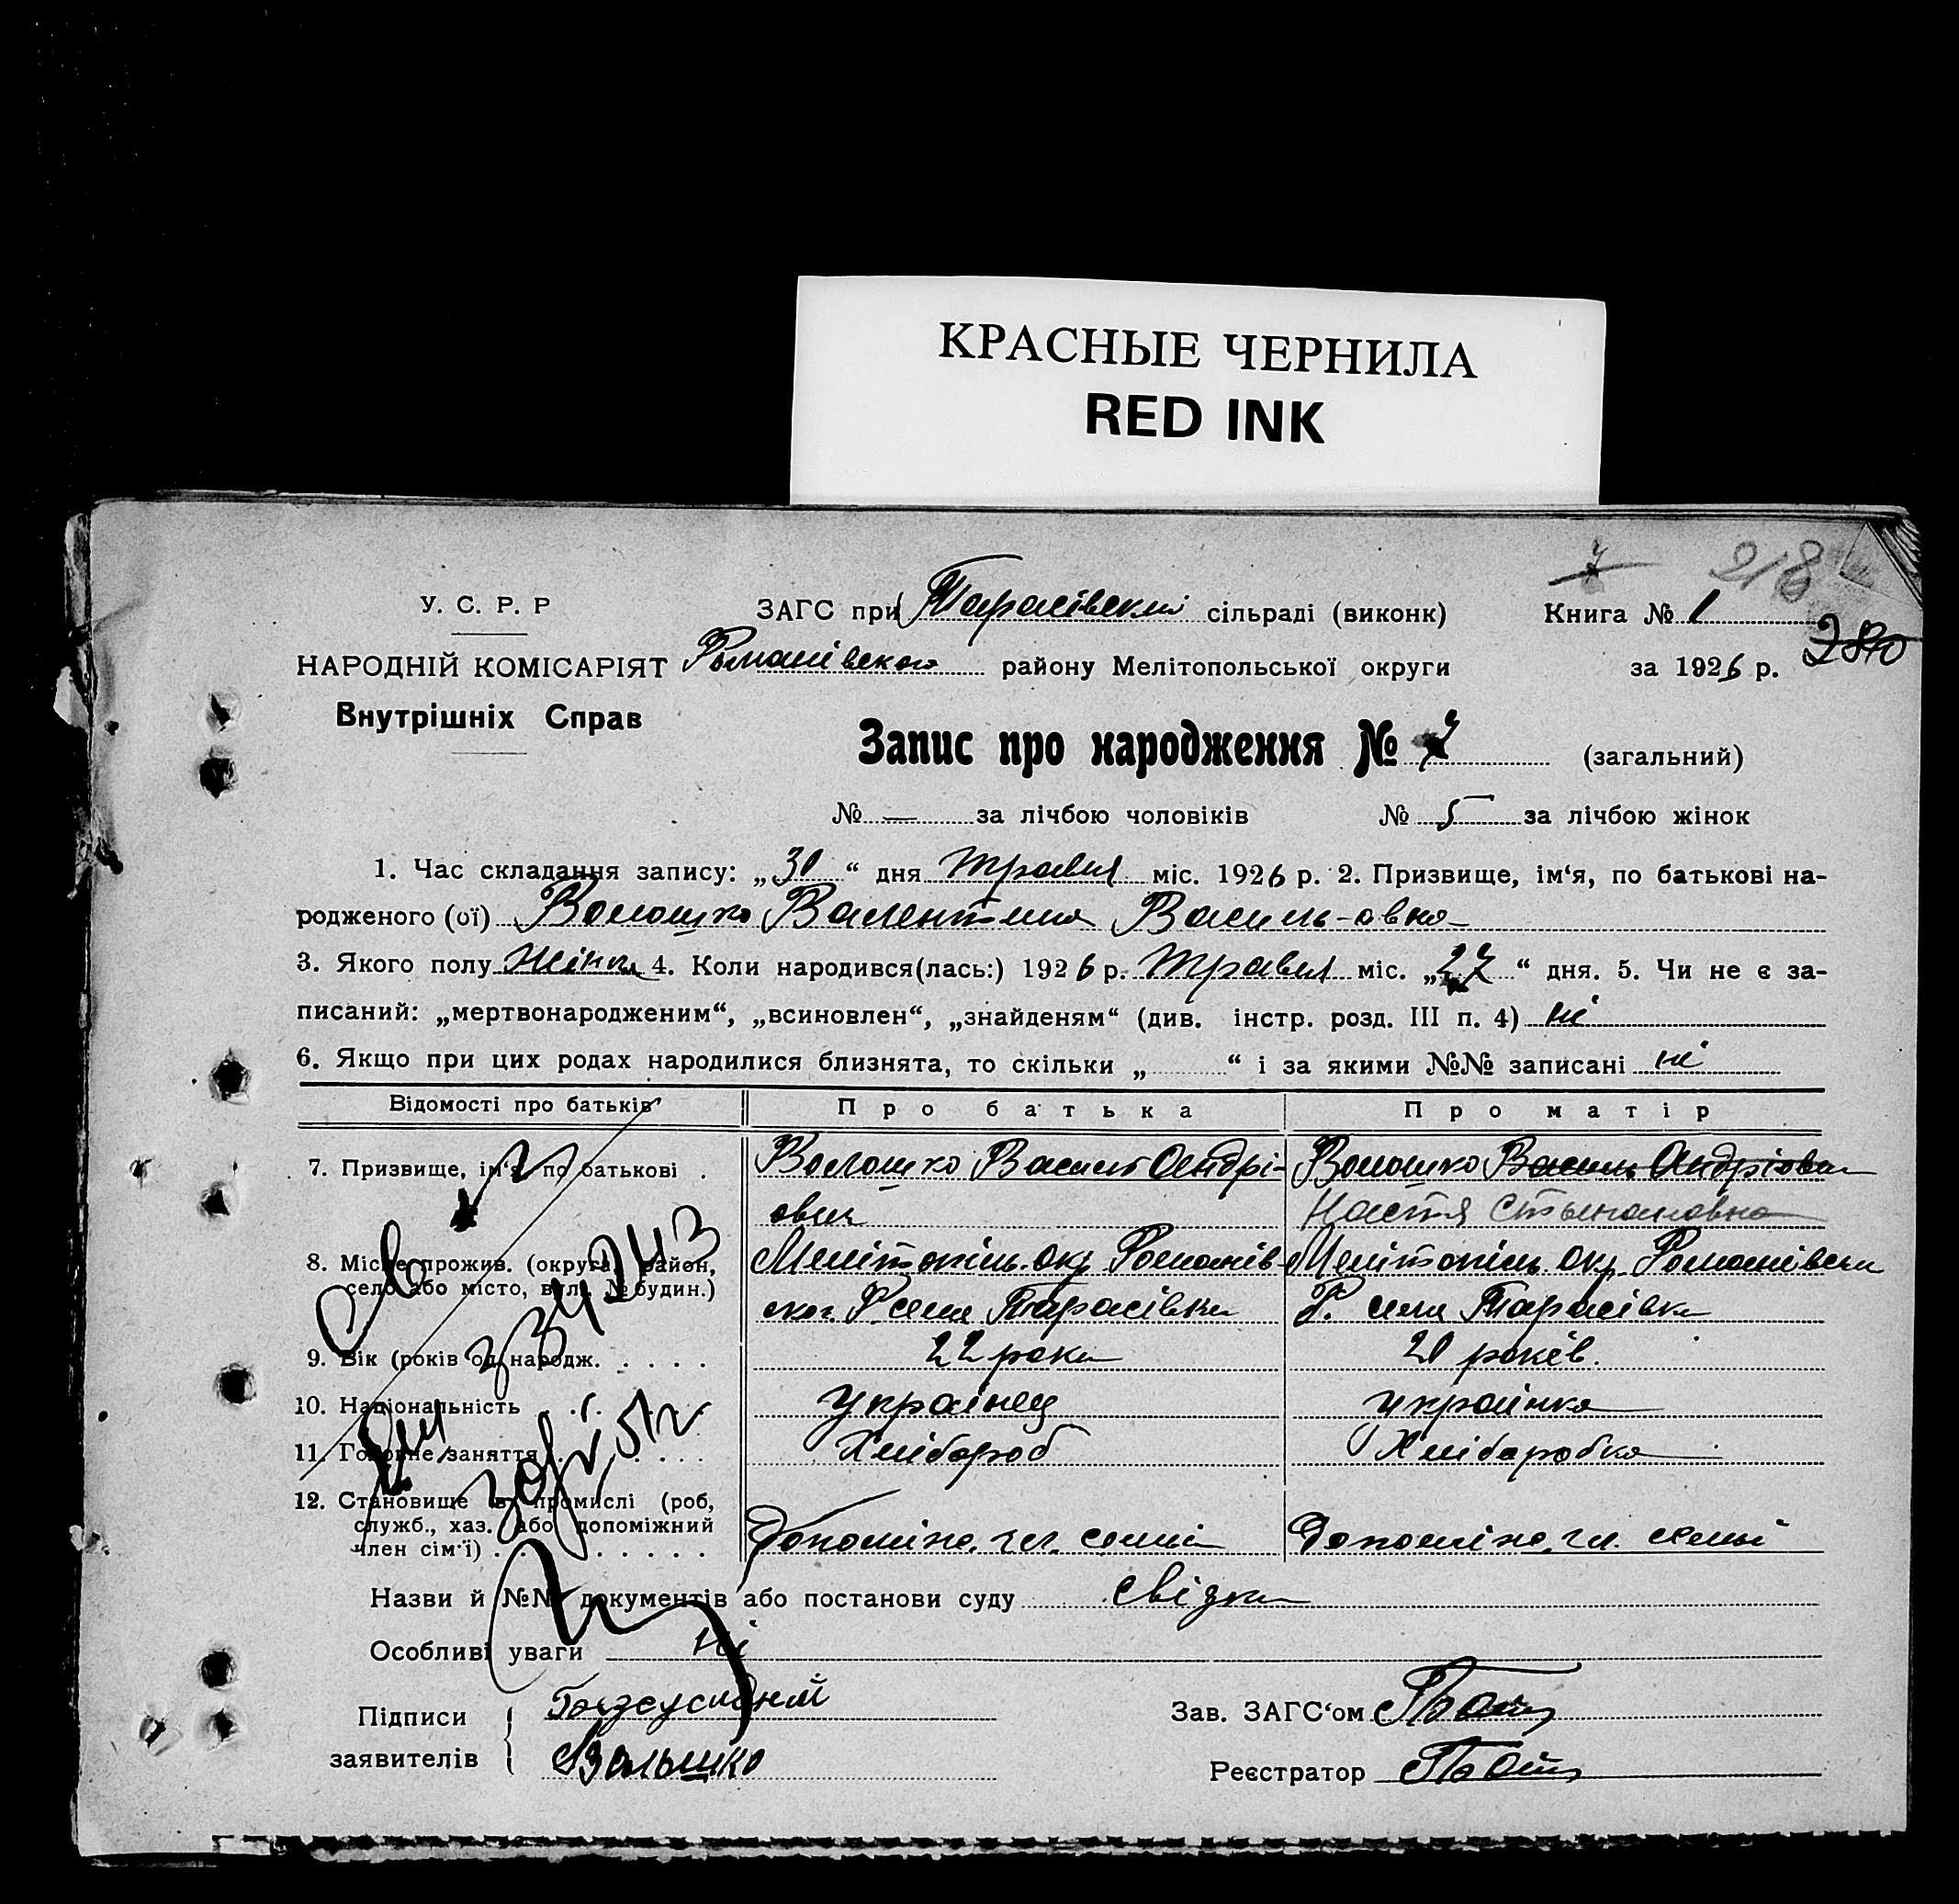 КРАСНЫЕ ЧЕРНИЛА
RED INK
7 218
У. С. Р. Р ЗАГС при Тарасівский сільраді (виконк) Книга № 1
280
НАРОДНІЙ КОМІСАРІЯТ Романівского району Мелітопольської округи за 1926 р.
Внутрішніх Справ
Запис про народження № 7 (загальний)
№ — за лічбою чоловіків № 5 за лічбою жінок
1. Час складання запису: „30“ дня Травня міс. 1926 р. 2. Призвище, ім‘я, по батькові на-
родженого (ої) Волошко Валентина Василь-овна
3. Якого полу Жінка 4. Коли народився(лась:) 1926 р. Травня міс. „27“ дня. 5. Чи не є за-
писаний: „мертвонародженим“, „всиновлен“, „знайденям“ (див. інстр. розд. III п. 4) ні
6. Якщо при цих родах народилися близнята, то скільки „ “ і за якими №№ записані ні
Відомості про батьків Про батька Про матір
7. Призвище, ім‘я, по батькові . Волошко Василь Андрі- Волошко Василь Андріовим
ович Настя Стьпановна
8. Місце прожив. (округа, район, Мелітопіль. окр. Романів- Мелітопіль. Окр. Романівськ
село або місто, вул. № будин.) ског. Р. села Тарасівки Р. села Тарасівки
9. Вік (років од народж. . . . . 22 роки 20 років.
10. Національність . . . . Українец Українка
11. Головне заняття . . . . . Хлібороб Хліборобка
12. Становище в промислі (роб,
служб., хаз. або допоміжний
член сім‘ї) . . . . . . . Допоміж. чл. семьі Допоміж. чл. семьі
Назви й №№ документів або постанови суду свідки
Особливі уваги ні
Підписи Зав. ЗАГС‘ом
заявителів Волошко
Реєстратор